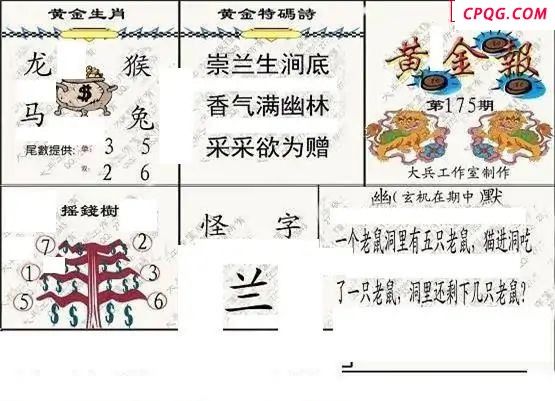 CPQG.COM
黄金生肖
龙 猴
马 兔
尾數提供: 单: 3 5
双: 2 6
黄金特碼詩
崇兰生涧底
香气满幽林
采采欲为赠
黄金報
第175期
大兵工作室制作
摇錢樹
⑦ ②
① ③
⑤ ⑥
怪 字
兰
幽(玄机在期中)默
一个老鼠洞里有五只老鼠，猫进洞吃
了一只老鼠，洞里还剩下几只老鼠？